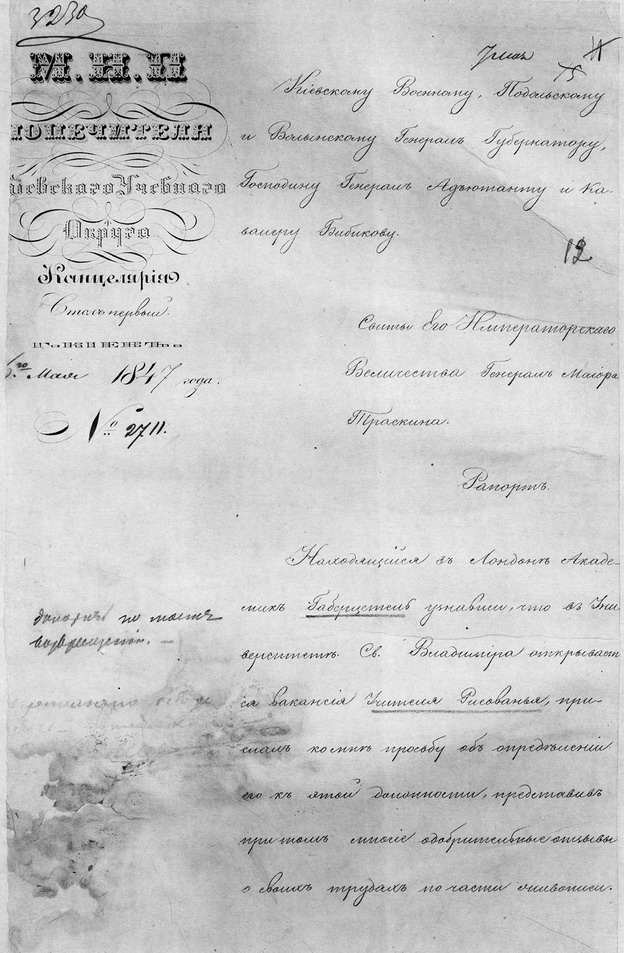 3230
М. Н. П
ПОПЕЧИТЕЛЯ
Кіевскаго Учебнаго
Округа
Канцелярія
Столъ первый.
Мая 1847 года.
№ 2711.
75
12
Кіевскому Военному, Подольскому
и Волынскому Генералъ Губернатору,
Господину Генералъ Адъютанту и Ка-
валеру Бибикову.
Свиты Его Императорскаго
Величества Генералъ Маіора
Траскина.
Рапортъ.
Находящійся въ Лондонѣ Акаде-
микъ Габерцетель узнавши, что въ Уни
верситетѣ Св. Владиміра открывает
ся вакансія Учителя Рисованья, при-
слалъ ко мнѣ просьбу объ опредѣленіи
его къ этой должности, представивъ
притомъ многіе одобрительные отзывы
о своихъ трудахъ по части живописи.
по
возвращеніи.